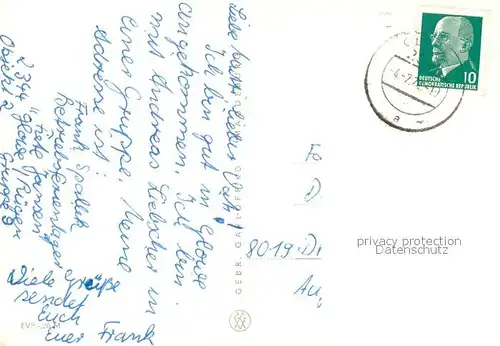 Liebe Mutti, lieber Vati!
Ich bin gut in Glowe
angekommen. Ich bin
mit Andreas Liebscher in
einer Gruppe. Meine
Adresse ist:
Frank
Betriebsferienlager
"Fiete Jansen"
2344 Glowe / Rügen
Objekt 2 Gruppe 9
Viele Grüße
sendet
Euch
Euer Frank
DEUTSCHE
DEMOKRATISCHE REPUBLIK
10
8019 Dr
privacy protection
Datenschutz